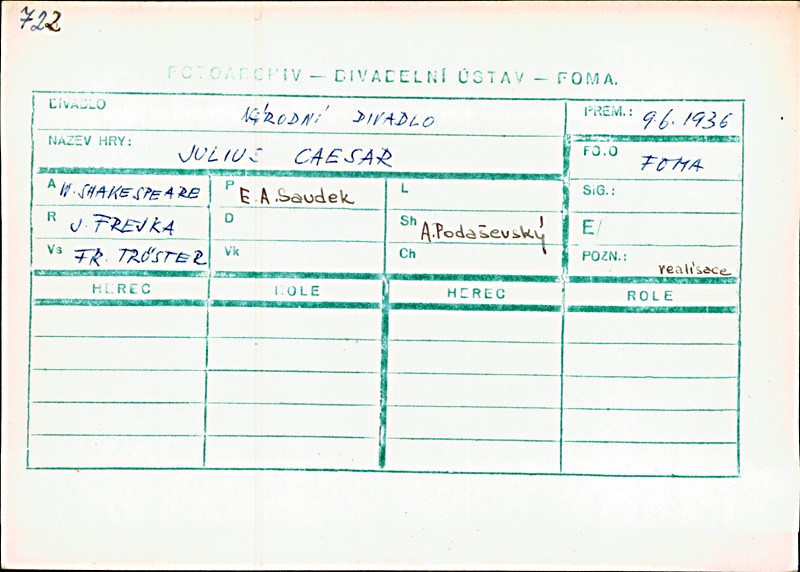 722
FOTOARCHIV — DIVADELNÍ ÚSTAV — FOMA.
DIVADLO NÁRODNÍ DIVADLO PREM.: 9.6.1936
NÁZEV HRY: JULIUS CAESAR FO.O FOMA
A W. SHAKESPEARE P E.A.Saudek L SIG.:
R J. FREJKA D Sh A.Podaševský E/
Vs FR. TRÖSTER Vk Ch POZN.: realisace
HEREC ROLE HEREC ROLE